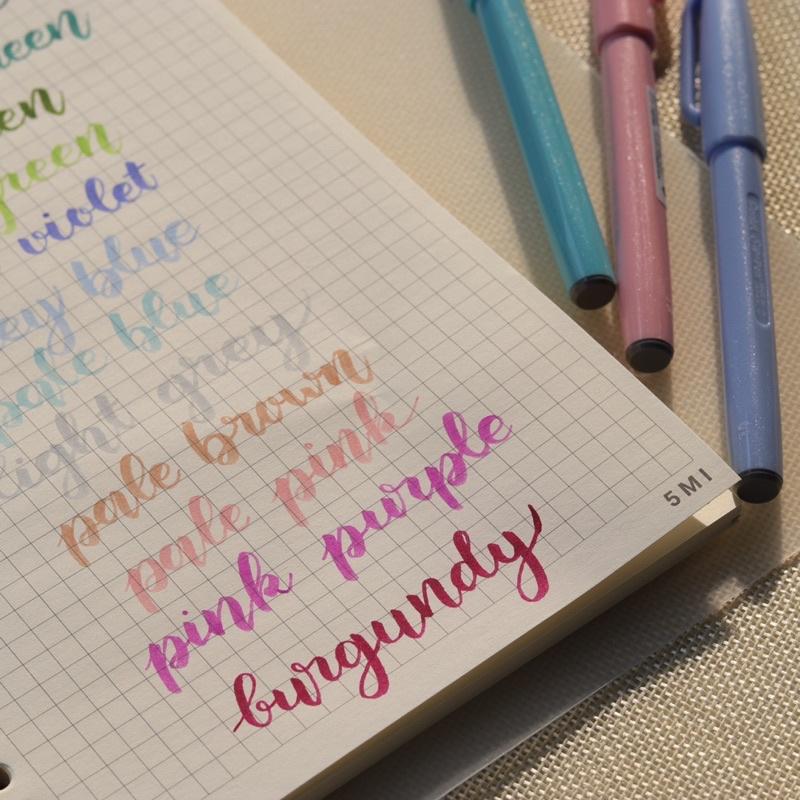 een
en
green
violet
ey blue
pale blue
light grey
pale brown
pale pink
pink purple
burgundy
5MI